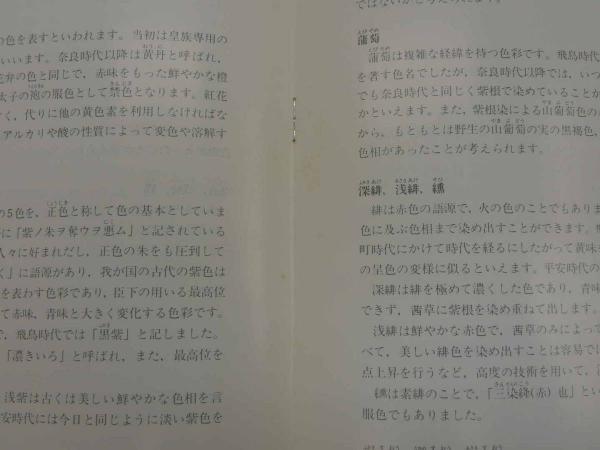 の色を表すといわれます。当初は皇族専用の
いいます。奈良時代以降は黄丹と呼ばれ，
花弁の色と同じで，赤味をもった鮮やかな橙
太子の袍の服色として禁色となります。紅花
く，代りに他の黄色素を利用しなければな
アルカリや酸の性質によって変色や溶解す
の5色を，正色と称して色の基本としていま
に「紫ノ朱ヲ奪ウヲ悪ム」と記されている
人々に好まれだし，正色の朱をも圧倒して
く」に語源があり，我が国の古代の紫色は
を表わす色彩であり，臣下の用いる最高位
て赤味，青味と大きく変化する色彩です。
で，飛鳥時代では「黒紫」と記しました。
「濃きいろ」と呼ばれ，また，最高位を
浅紫は古くは美しい鮮やかな色相を言
安時代には今日と同じように淡い紫色を
ではないかと
葡萄
葡萄は複雑な経緯を持つ色彩です。飛鳥時代
を著す色名でしたが，奈良時代以降では，いつ
でも奈良時代と同じく紫根で染めていることが
かといえます。また，紫根染による山葡萄色の
から，もともとは野生の山葡萄の実の黒褐色，
色相があったことが考えられます。
深緋，浅緋，纁
緋は赤色の語源で，火の色のことでもありま
色に及ぶ色相まで染め出すことができます。
町時代にかけて時代を経るにしたがって黄味を
の呈色の変様に似るといえます。平安時代の
深緋は緋を極めて濃くした色であり，青味
できず，茜草に紫根を染め重ねて出します。
浅緋は鮮やかな赤色で，茜草のみによって
べて，美しい緋色を染め出すことは容易では
点上昇を行うなど，高度の技術を用いて，
纁は素緋のことで，「三染絳(赤)也」とい
服色でもありました。